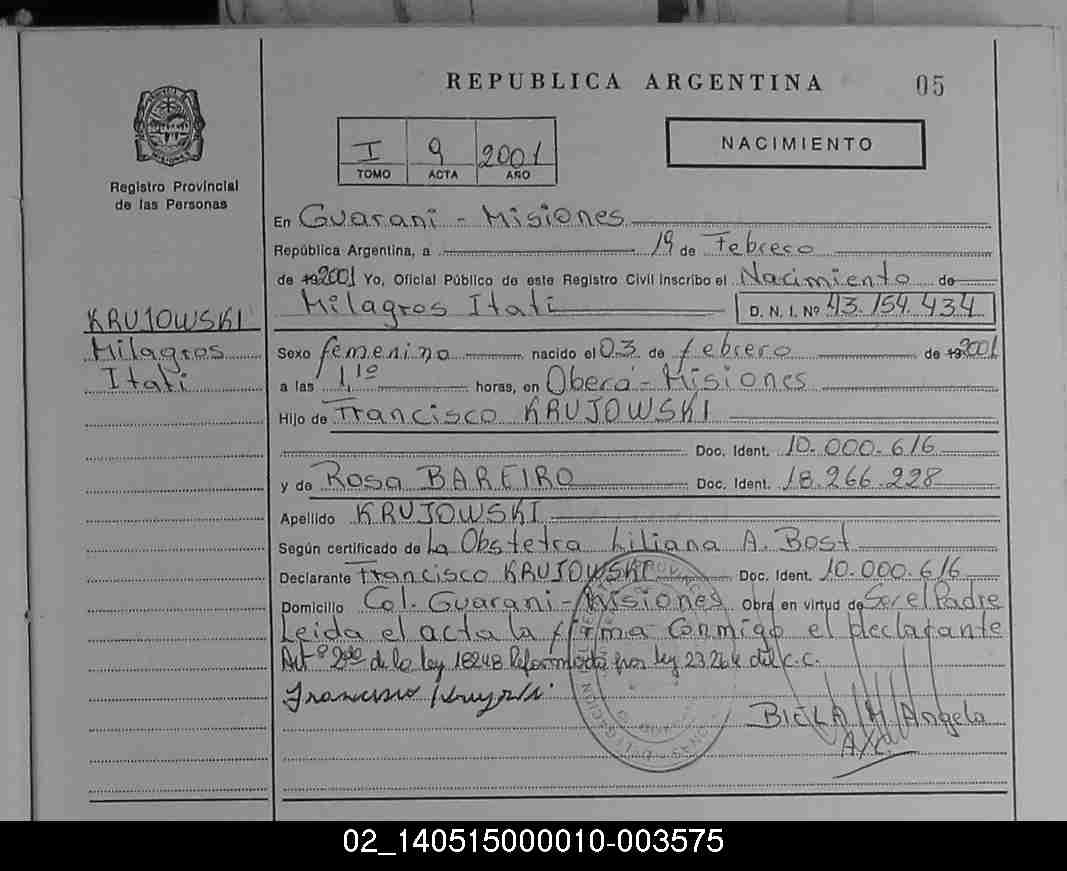 REPUBLICA ARGENTINA 05
Registro Provincial
de las Personas
I 9 2001
TOMO ACTA AÑO
NACIMIENTO
En Guarani - Misiones
República Argentina, a 19 de Febrero
de 192001 Yo, Oficial Público de este Registro Civil inscribo el Nacimiento de
Milagros Itati D. N. I. Nº 43.154.434
KRUJOWSKI
Milagros
Itati
Sexo femenino nacido el 03 de febrero de 192001
a las 1,10 horas, en Oberá - Misiones
Hijo de Francisco KRUJOWSKI
Doc. Ident. 10.000.616
y de Rosa BAREIRO Doc. Ident. 18.266.228
Apellido KRUJOWSKI
Según certificado de La Obstetra Liliana A. Bost
Declarante Francisco KRUJOWSKI Doc. Ident. 10.000.616
Domicilio Col. Guarani - Misiones Obra en virtud de Ser el Padre
Leida el acta la firma conmigo el declarante
Art º 2do de la ley 18248 Reformada por ley 23.264 del C.C.
Francisco
Angela
02_140515000010-003575